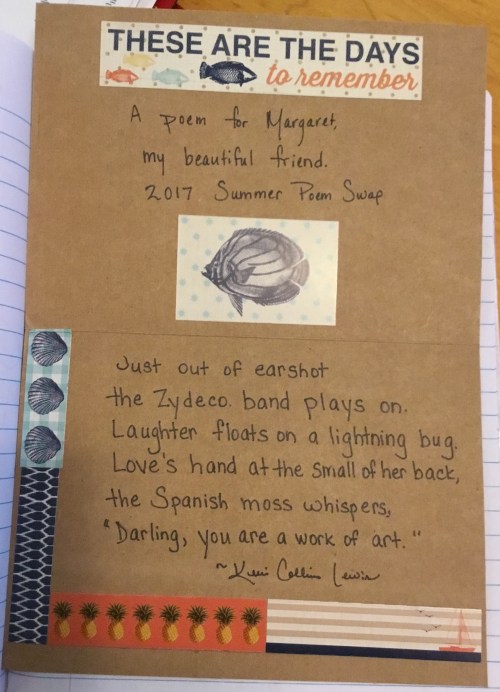 THESE ARE THE DAYS
to remember
A poem for Margaret,
my beautiful friend.
2017 Summer Poem Swap
Just out of earshot
the Zydeco band plays on.
Laughter floats on a lightning bug.
Love's hand at the small of her back,
the Spanish moss whispers,
"Darling, you are a work of art."
~ Keri Collins Lewis